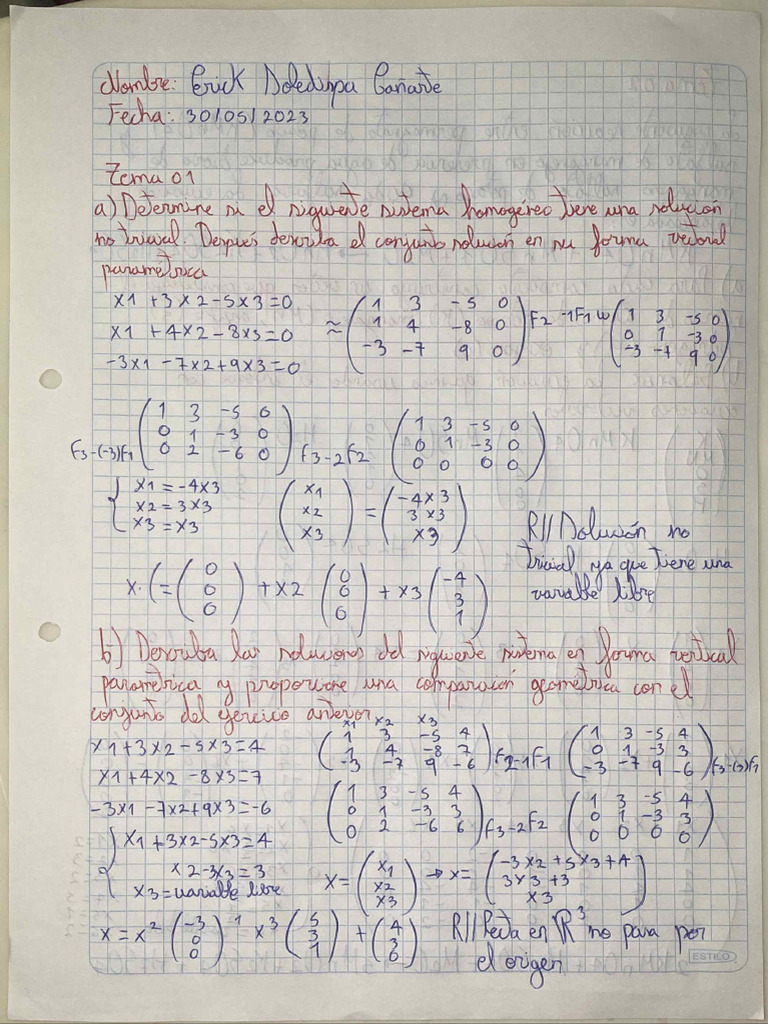 Nombre: Erick
Fecha: 30/05/2023
Tema 01
a) Determine si el siguiente sistema homogéneo tiene una solución
no trivial. Después describa el conjunto solución en su forma vectorial
paramétrica
x1 + 3x2 - 5x3 = 0
x1 + 4x2 - 8x3 = 0
-3x1 - 7x2 + 9x3 = 0
≈ ( 1 3 -5 0
1 4 -8 0
-3 -7 9 0 ) F2 -1F1
( 1 3 -5 0
0 1 -3 0
-3 -7 9 0 )
F3-(-3)F1 ( 1 3 -5 0
0 1 -3 0
0 2 -6 0 ) F3-2F2
( 1 3 -5 0
0 1 -3 0
0 0 0 0 )
{ x1 = -4x3
x2 = 3x3
x3 = x3
( x1
x2
x3 ) = ( -4x3
3x3
x3 )
R// Solución no
trivial ya que tiene una
variable libre
x. ( = ( 0
0
0 ) + x2 ( 0
0
0 ) + x3 ( -4
3
1 )
b) Describa las soluciones del siguiente sistema en forma vertical
paramétrica y proporcione una comparación geométrica con el
conjunto del ejercicio anterior
x1 + 3x2 - 5x3 = 4
x1 + 4x2 - 8x3 = 7
-3x1 - 7x2 + 9x3 = -6
x1 x2 x3
( 1 3 -5 4
1 4 -8 7
-3 -7 9 -6 ) F2-1F1
( 1 3 -5 4
0 1 -3 3
-3 -7 9 -6 ) F3-(-3)F1
( 1 3 -5 4
0 1 -3 3
0 2 -6 6 ) F3-2F2
( 1 3 -5 4
0 1 -3 3
0 0 0 0 )
{ x1 + 3x2 - 5x3 = 4
x2 - 3x3 = 3
x3 = variable libre
x = ( x1
x2
x3 ) → x = ( -3x2 + 5x3 + 4
3x3 + 3
x3 )
x = x² ( -3
0
0 ) 1 x³ ( 5
3
1 ) + ( 4
3
0 )
R// Recta en R³ no pasa por
el origen
ESTILO